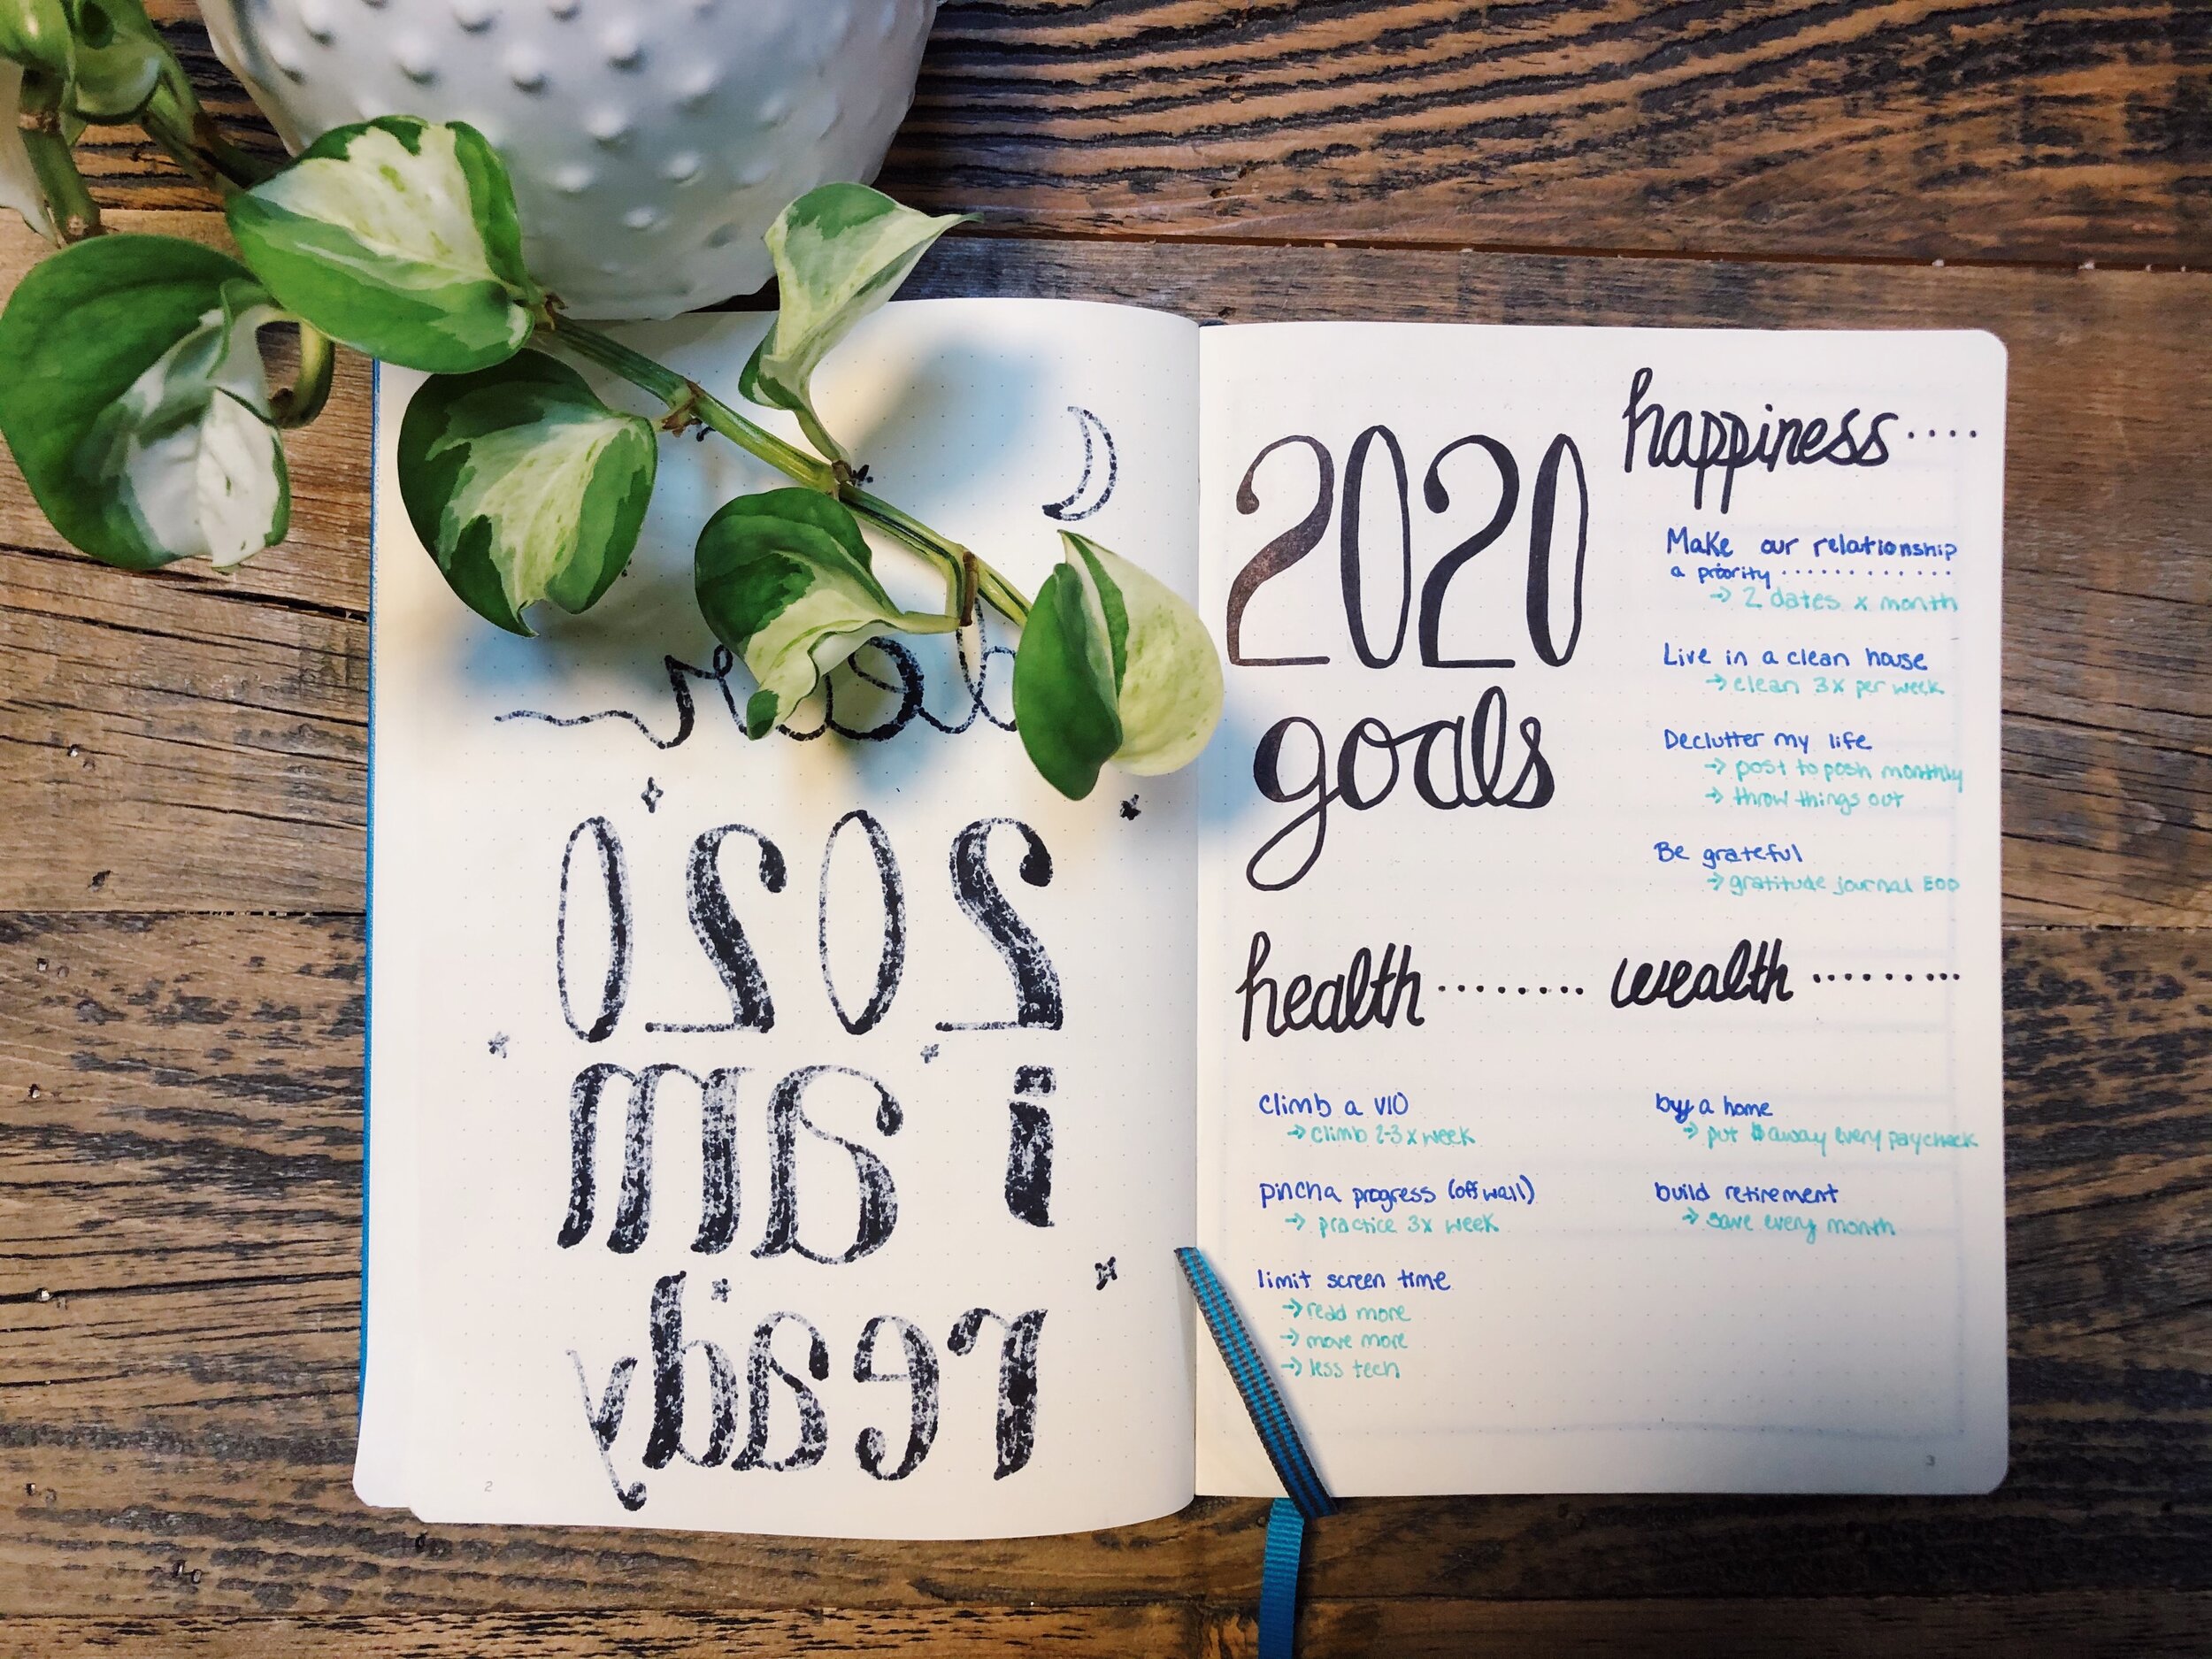 dear
2020
i am
ready
2
2020
goals
happiness....
Make our relationship
a priority............
→ 2 dates x month
Live in a clean house
→ clean 3x per week
Declutter my life
→ post to posh monthly
→ throw things out
Be grateful
→ gratitude journal EOD
health ........
climb a V10
→ climb 2-3x week
pincha progress (off wall)
→ practice 3x week
limit screen time
→ read more
→ move more
→ less tech
wealth .........
buy a home
→ put $ away every paycheck
build retirement
→ save every month
3